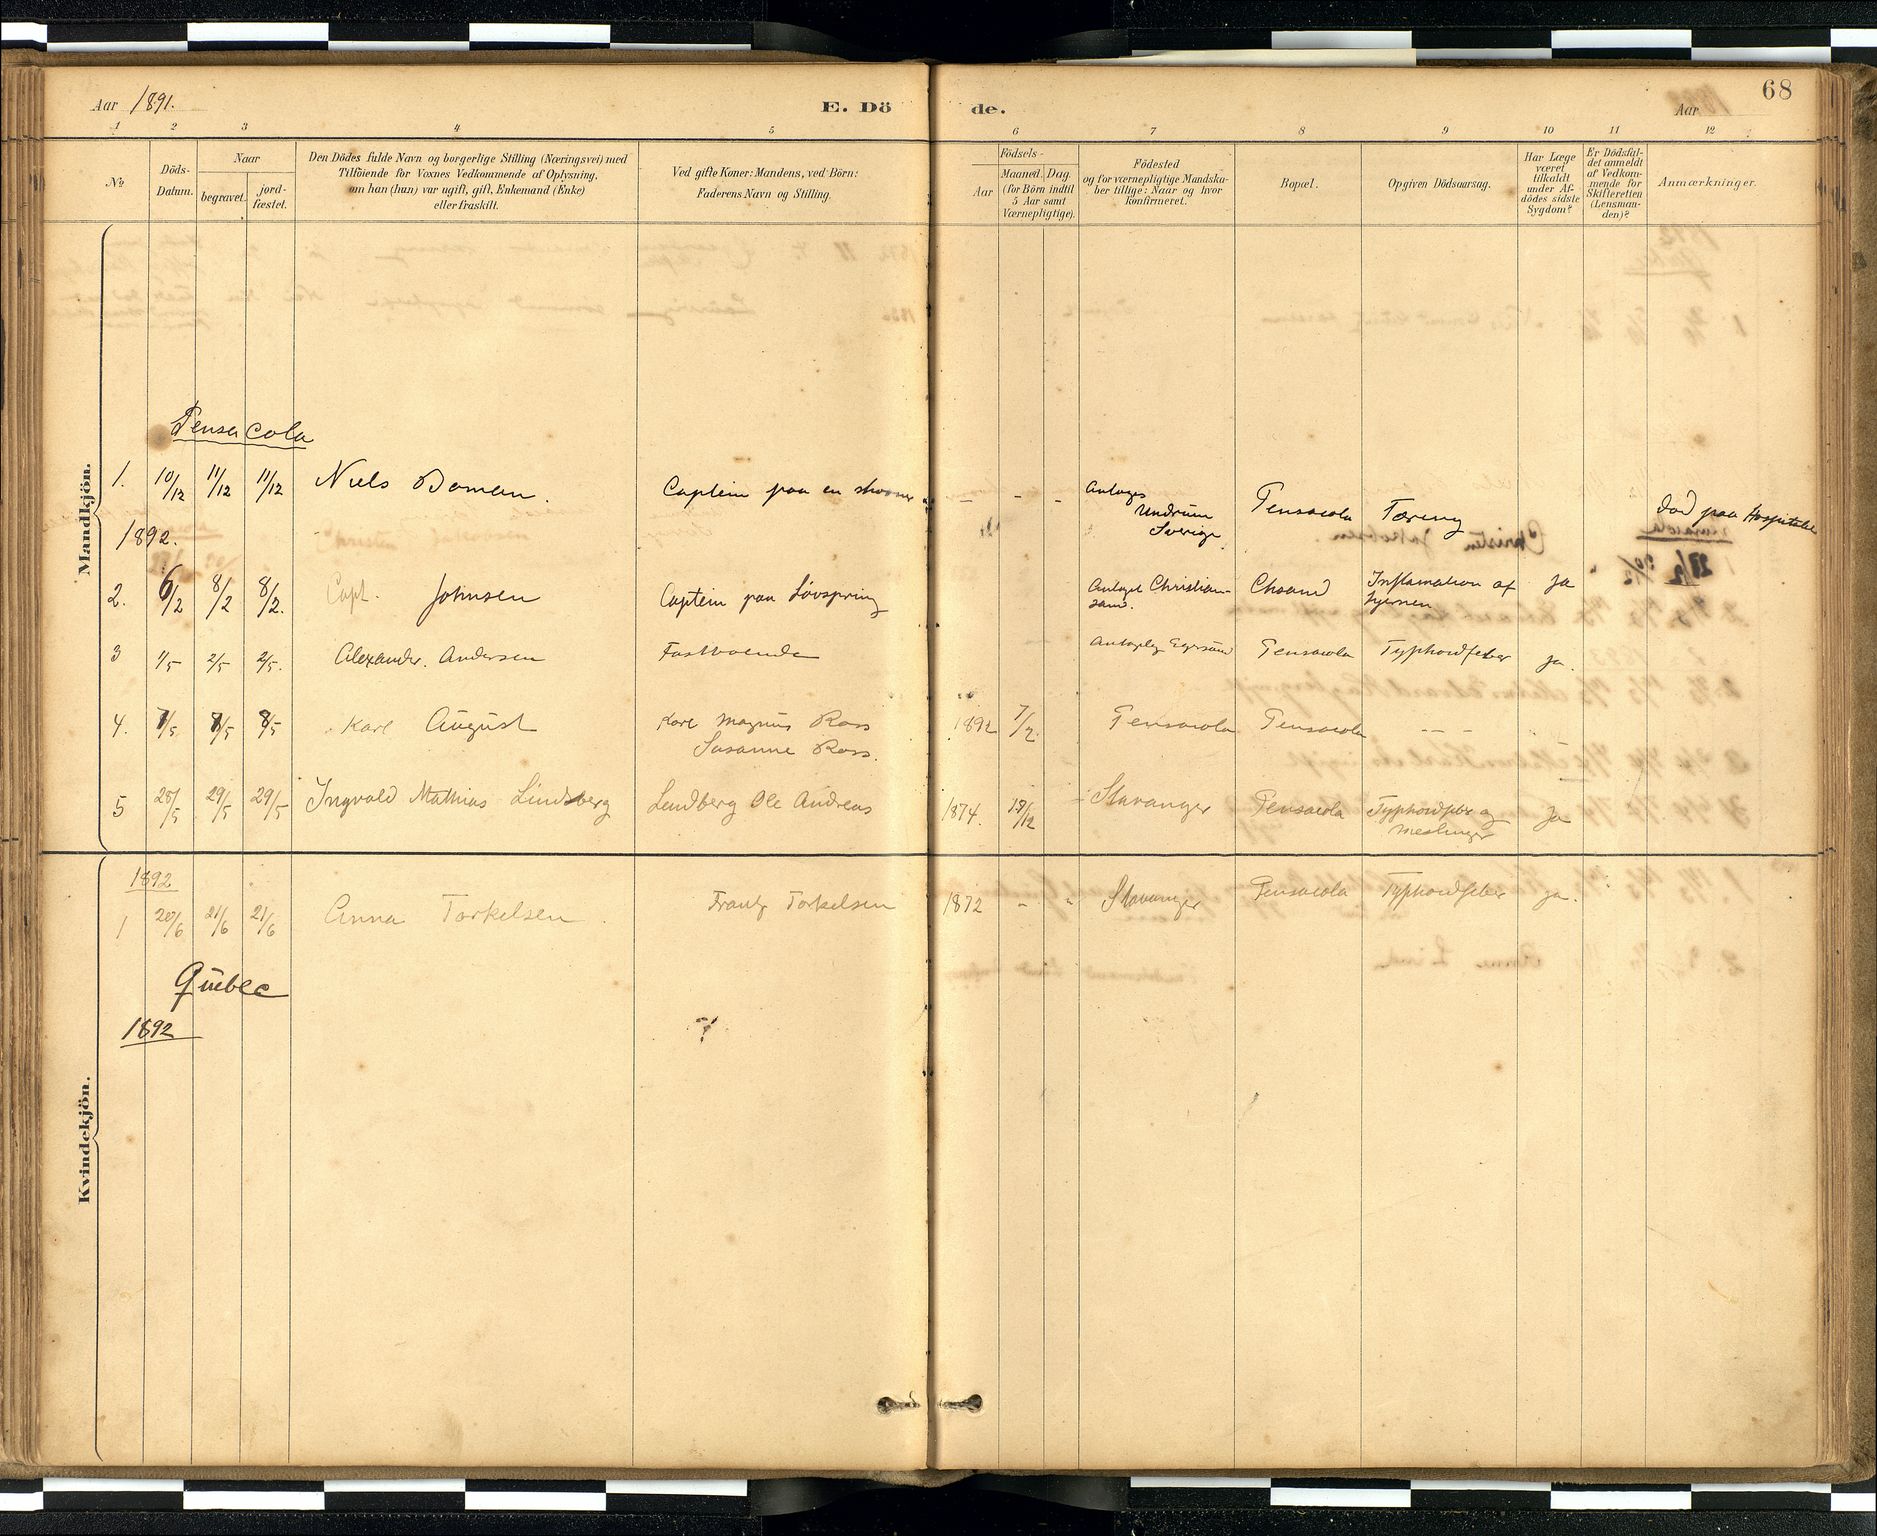 68
Aar 1891.
E. Dö
de.
Aar
1 2 3 4 5 6 7 8 9 10 11 12
№
Döds-
Datum.
Naar
begravet.
jord-
fæstet.
Den Dödes fulde Navn og borgerlige Stilling (Næringsvei) med
Tilföiende for Voxnes Vedkommende af Oplysning,
om han (hun) var ugift, gift, Enkemand (Enke)
eller fraskilt.
Ved gifte Koner: Mandens, ved Börn:
Faderens Navn og Stilling.
Födsels-
Aar
Maaned. Dag.
(for Börn indtil
5 Aar samt
Værnepligtige).
Födested
og for værnepligtige Mandska-
ber tillige: Naar og hvor
konfirmeret.
Bopæl.
Opgiven Dödsaarsag.
Har Læge
været
tilkaldt
under Af-
dödes sidste
Sygdom?
Er Dödsfal-
det anmeldt
af Vedkom-
mende for
Skifteretten
(Lensman-
den)?
Anmærkninger.
Mandkjön.
Pensacola
1. 10/12 11/12 11/12 Niels Boman. Captein paa en - - - Undrum Sverige. Pensacola Tæring død paa Hospitalet
1892.
2. 6/2 8/2 8/2. Capt. Johnsen Captein paa Løvspring Christian-
sand. Chsand Inflamation af
hjernen Ja
3 1/5 2/5 2/5. Alexander. Andersen Fastboende Pensacola Typhoidfeber ja.
4. 7/5 8/5 8/5 Karl August Karl Magnus Ross
Susanne Ross. 1892 7/2. Pensacola Pensacola - - -
5 28/5 29/5 29/5 Ingvald Mathias Lindsberg Lendberg Ole Andreas 1874. 18/12 Stavanger Pensacola Typhoidfeber og
Meslinger Ja
Kvindekjön.
1892
1 20/6 21/6 21/6 Anna Torkelsen Frantz Torkelsen 1872 - " Stavanger Pensacola Typhoidfeber ja.
Quebec
1892 ?